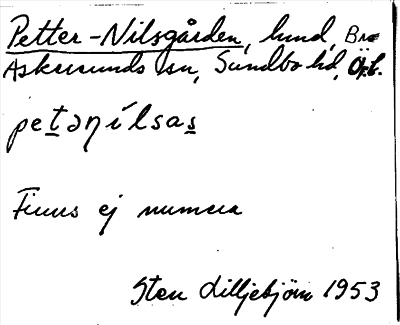 Petter-Nilsgården, lund, Bre
Askersunds sn, Sundbo hd, Ör.l.
petəņílsas
Finns ej numera
Sten Lilljebjörn 1953